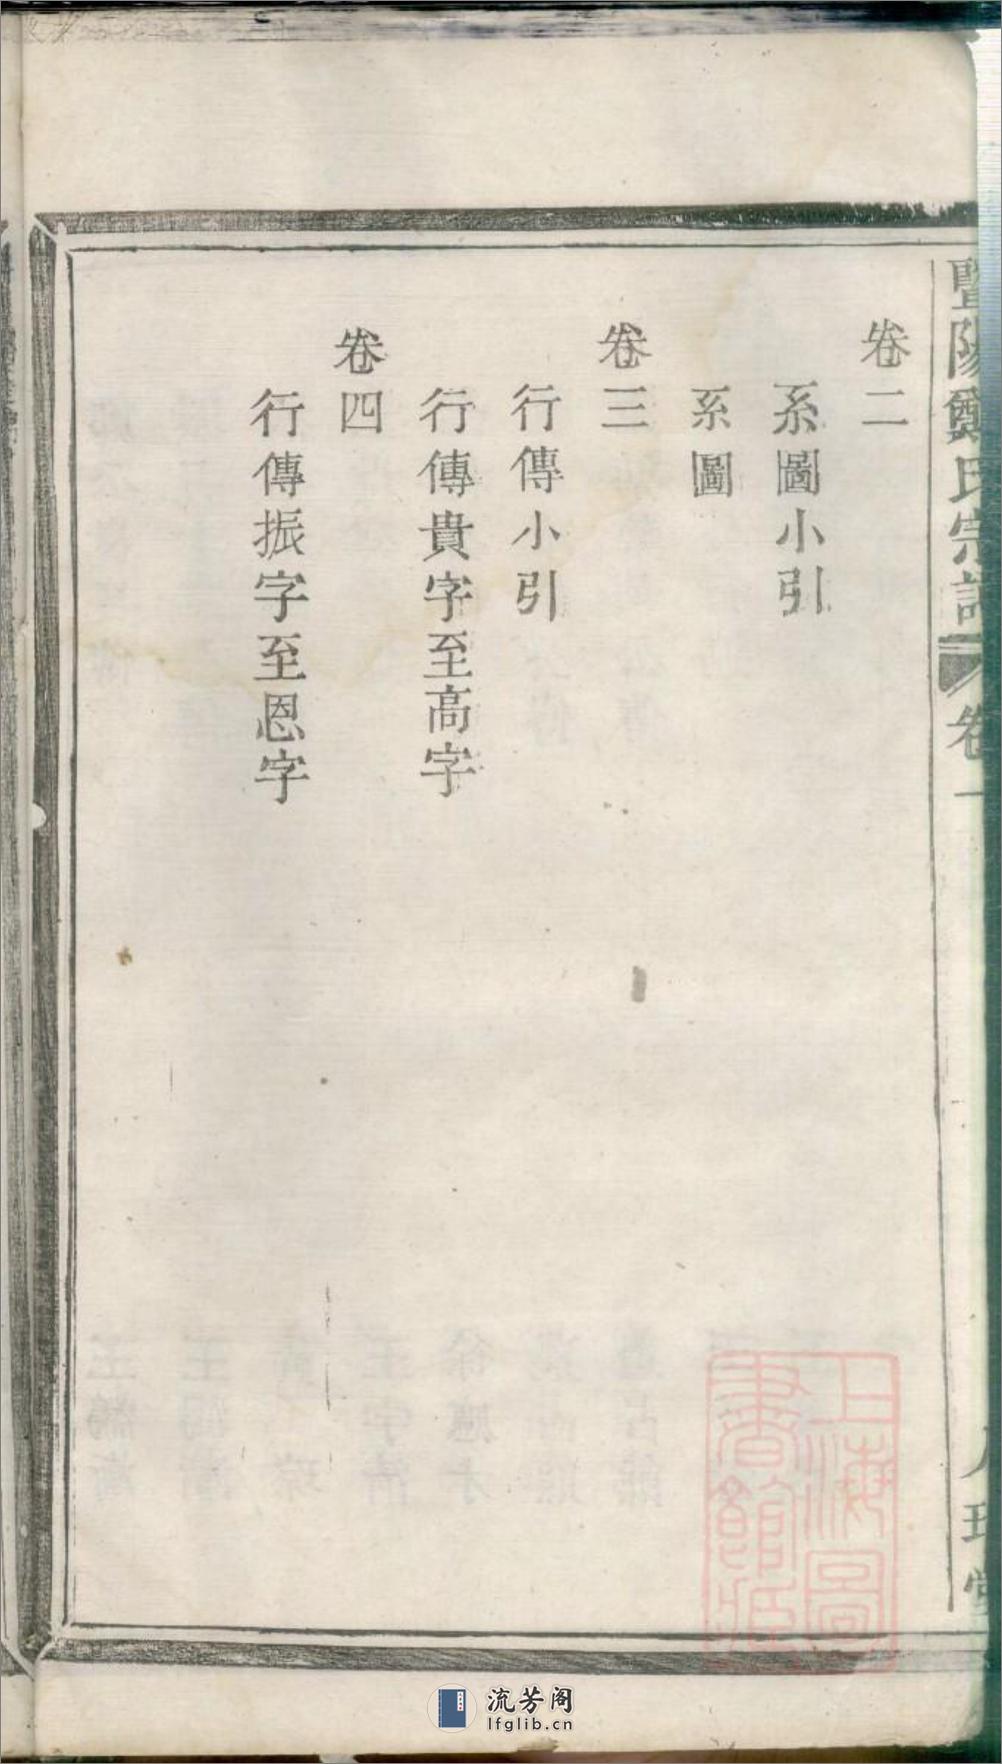 暨陽鄭氏宗譜 卷一
卷二
系圖小引
系圖
卷三
行傳小引
行傳貴字至高字
卷四
行傳振字至恩字
上海圖書館藏
流芳阁
lfglib.cn